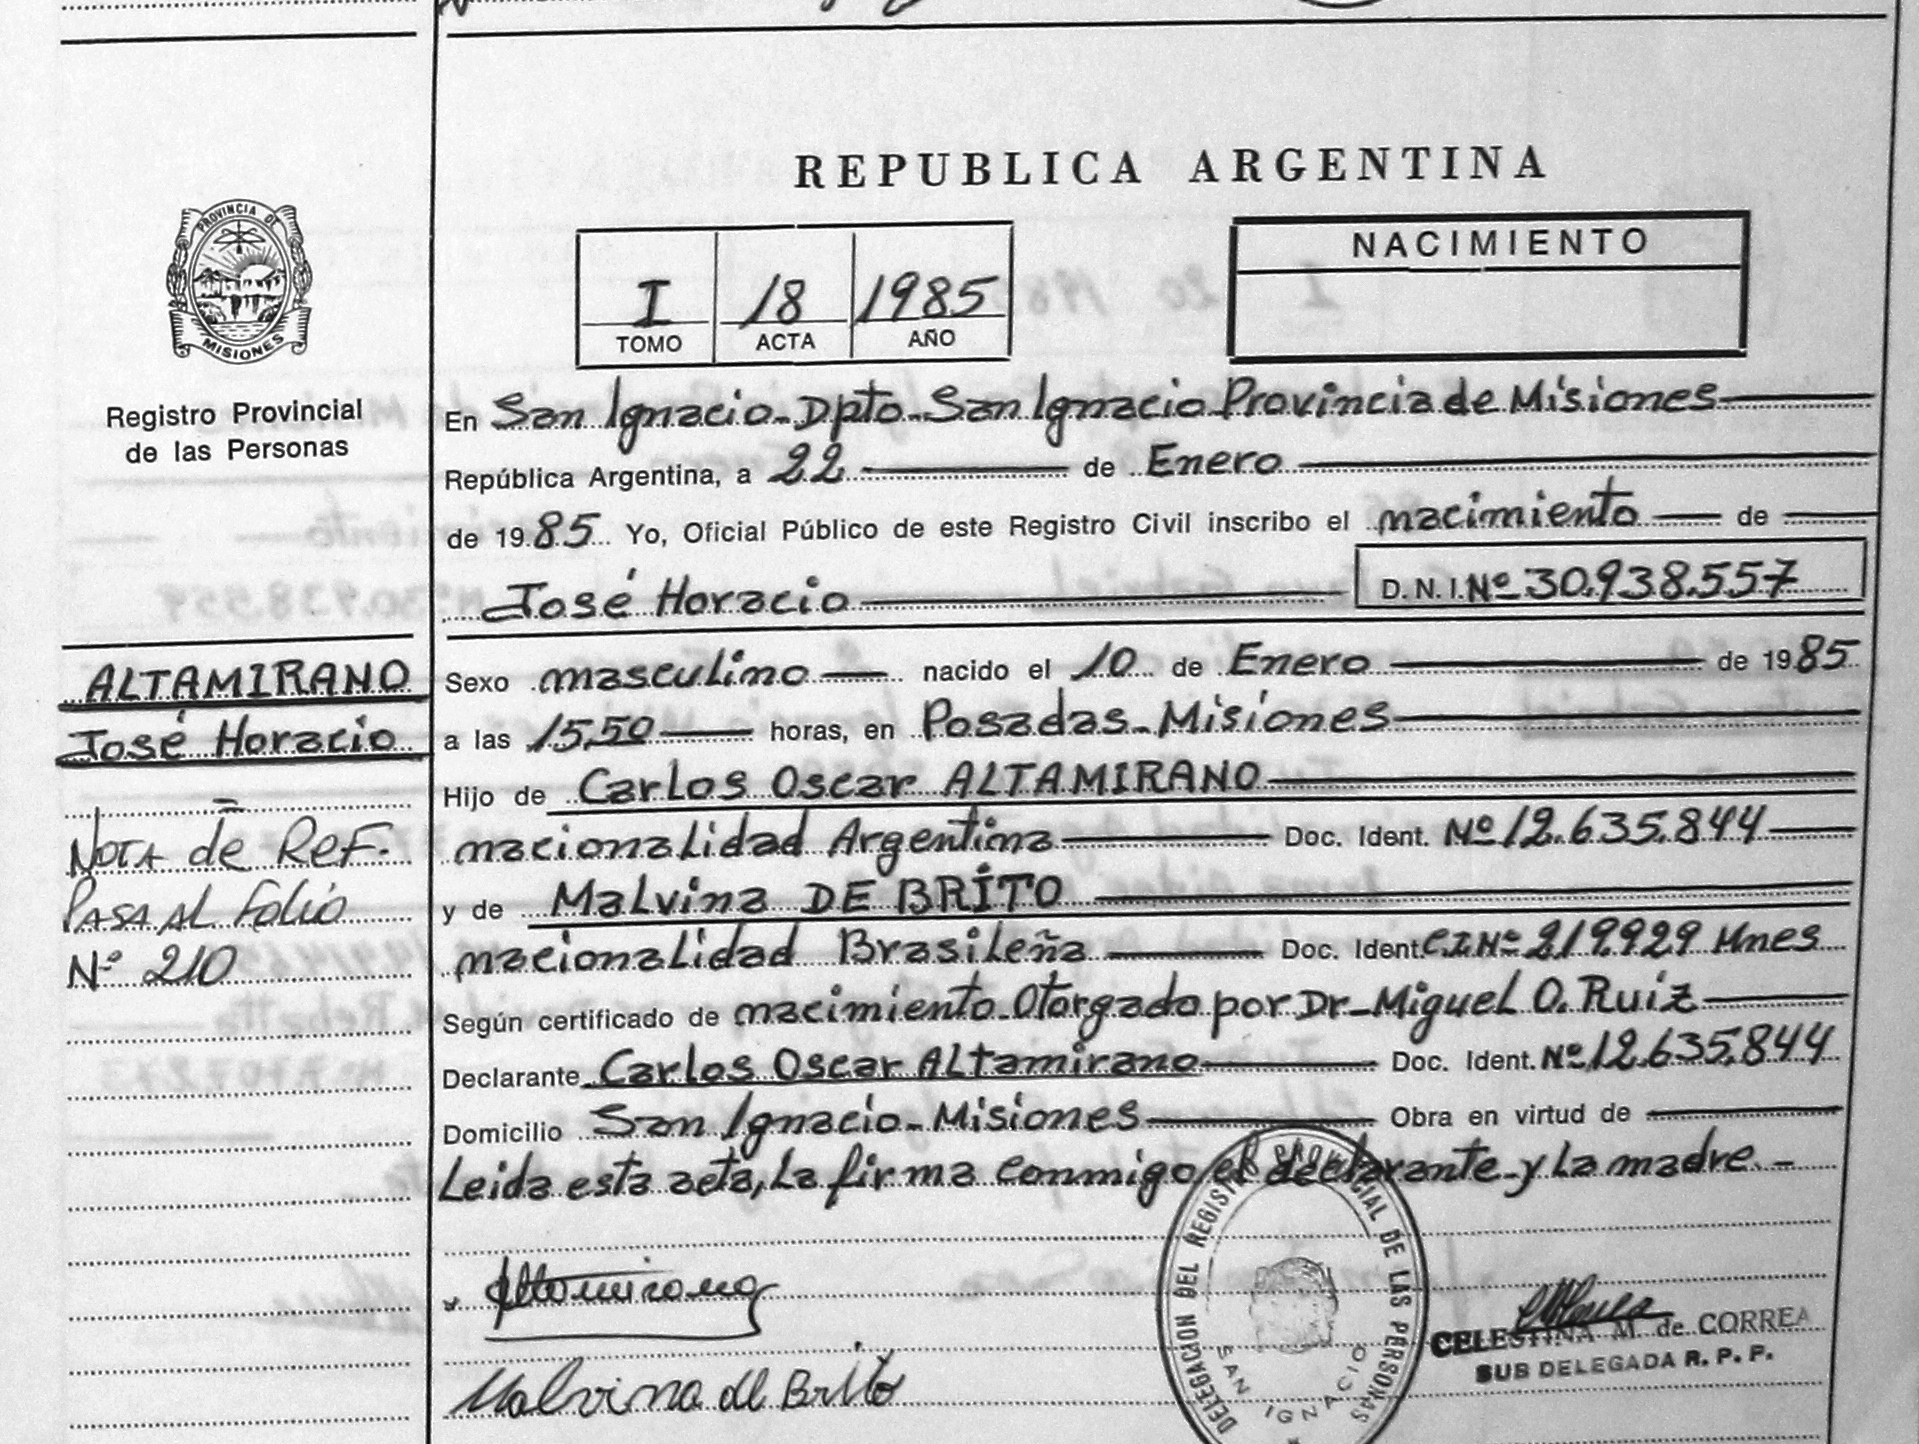 REPUBLICA ARGENTINA
PROVINCIA DE
MISIONES
Registro Provincial
de las Personas
I 18 1985
TOMO ACTA AÑO
NACIMIENTO
En San Ignacio-Dpto-San Ignacio Provincia de Misiones
República Argentina, a 22 de Enero
de 1985 Yo, Oficial Público de este Registro Civil inscribo el nacimiento de
José Horacio D.N.I. Nº 30.938.557
ALTAMIRANO
José Horacio
Nota de Ref.
Pasa al Folio
Nº 210
Sexo masculino nacido el 10 de Enero de 1985
a las 15,50 horas, en Posadas-Misiones
Hijo de Carlos Oscar ALTAMIRANO
nacionalidad Argentina Doc. Ident. Nº 12.635.844
y de Malvina DE BRITO
nacionalidad Brasileña Doc. Ident. C.I.Nº 219.929 Mnes
Según certificado de nacimiento Otorgado por Dr-Miguel O. Ruiz
Declarante Carlos Oscar Altamirano Doc. Ident. Nº 12.635.844
Domicilio San Ignacio-Misiones Obra en virtud de
Leida esta acta, la firma conmigo el declarante y la madre.-
Altamirano
Malvina de Brito
DELEGACION DEL REGISTRO PROVINCIAL DE LAS PERSONAS
SAN IGNACIO
CELESTINA M. de CORREA
SUB DELEGADA R. P. P.